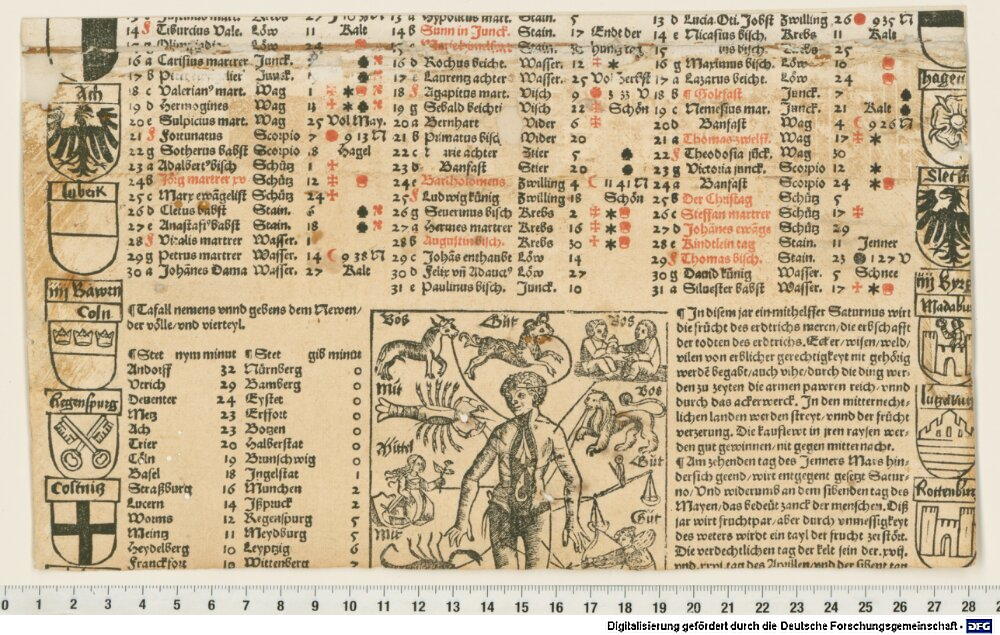 14 Tiburcius Vale. Löw 11 Kale
16 a Carisius martrer Junck.
18 c Valerian9 mart. Wag 1
19 d Hermogines Wag 13
20 e Sulpicius mart. Wag 25 Vol May.
21 f Fortunatus Scorpio 7 9 13 N
22 g Sotherus babst Scorpio 18 Hagel
23 a Adalbert9 bisch Schütz 1
24 b Jörg martrer Schütz 12
25 c Marx ewāgelist Schütz 24
26 d Cletus babst Stain. 6
27 e Anastasi9 babst Stain. 18
28 f Vitalis martrer Wasser. 1
29 g Petrus martrer Wasser. 14 9 38 N
30 a Johānes Dama Wasser. 27 Kale
14 b Sunn in Junck. Stain. 17 Ende der
16 d Rochus beicht. Wasser. 12
17 e Laurentz achter Wasser. 25 Vol herbst
18 f Agapitus mart. Visch 9 3 33 V
19 g Sebald beichti Visch 22 Schön
20 a Bernhart Wider 6
21 b Primatus bisch Wider 20
22 c achter Stier 5
23 d Banfast Stier 20
24 e Bartholomeus Zwilling 4 11 41 N
25 f Ludwig künig Zwilling 18 Schön
26 g Seuerinus bisch Krebs 2
27 a Hermes martrer Krebs 16
28 b Augustin bisch. Krebs 30
29 c Johās enthaubt Löw 14
30 d Felix vn Adauc9 Löw 27
31 e Paulinus bisch. Junck. 10
13 d Lucia Oti. Jobst Zwilling 26 9 35 N
14 e Nicasius bisch. Krebs 11 Kale
16 g Maximus bisch. Löw 10
17 a Lazarus beicht. Löw 24
18 b Goltfast Junck. 7
19 c Nemesius mar. Junck. 21 Kalt
20 d Banfast Wag 4 9 26 N
21 e Thomas zwelff. Wag 17
22 f Theodosia jück. Wag 30
23 g Victoria junck. Scorpio 12
24 a Banfast Scorpio 24
25 b Der Christag Schütz 5
26 c Steffan martrer Schütz 17
27 d Johānes ewāgs Schütz 29
28 e Kindlein tag Stain. 11 Jenner
29 f Thomas bisch. Stain. 23 1 27 V
30 g Dauid künig Wasser. 5 Schnee
31 a Siluester babst Wasser. 17
Ach
Lubeck
iiij Bawern
Coln
Regenspurg
Costnitz
¶ Tafall nemens vnnd gebens dem Newen/
der völle/vnd vierteyl.
¶ Stet nym minut ¶ Stet gib minut
Andorff 32 Nürnberg 0
Vtrich 29 Bamberg 0
Deuenter 24 Eystet 0
Metz 23 Erffort 0
Ach 23 Botzen 0
Trier 20 Halberstat 0
Cöln 19 Brunschwig 0
Basel 18 Ingelstat 1
Straßburg 16 Munchen 2
Lucern 14 Jßpruck 2
Worms 12 Regenspurg 5
Meintz 11 Meydburg 5
Heydelberg 10 Leyptzig 6
Franckfort 10 Wittenberg 7
Bos
Güt
Bos
Mit
Bos
Mittel
Güt
Mit
Gut
¶ In disem jar ein mithelffer Saturnus wirt
die frücht des erdtrichs meren/die erbschafft
der todten des erdtrichs. Ecker/wisen/weld/
wilen von erblicher gerechtigkeyt nit gehörig
werdē begabt/auch vihe/durch die ding wer-
den zu zeyten die armen pawren reich/vnnd
durch das ackerwerck. In den mitternecht-
lichen landen werden streyt/vnnd der frücht
verzerung. Die kaufleut in jren raysen wer-
den gut gewinnen/nit gegen mitternacht.
¶ Am zehenden tag des Jenners Mars hin-
dersich geend/wirt entgegent gesetzt Satur-
no/Vnd widerumb an dem sibenden tag des
Mayen/das bedeüt zanck der menschen. Diß
jar wirt fruchtpar/aber durch vnmessigkeyt
des weters wirdt ein tayl der frucht zerstört.
Die verdechtlichen tag der kelt sein der.xviij.
vnd.xxvi.tag des Aprillen/vnd der sibent tag
Hagen
Slets
iiij Burg
Madabur
Lutzelbur
Rottenburg
0 1 2 3 4 5 6 7 8 9 10 11 12 13 14 15 16 17 18 19 20 21 22 23 24 25 26 27 28 2
Digitalisierung gefördert durch die Deutsche Forschungsgemeinschaft - DFG